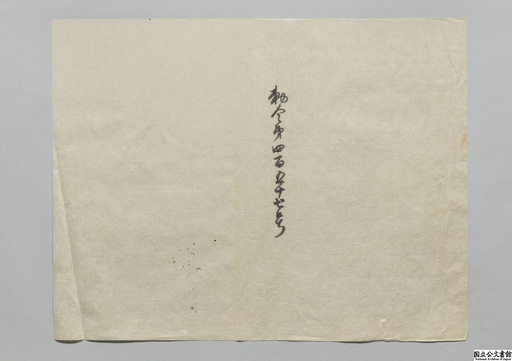 勅令第四百五十七号
国立公文書館
National Archives of Japan